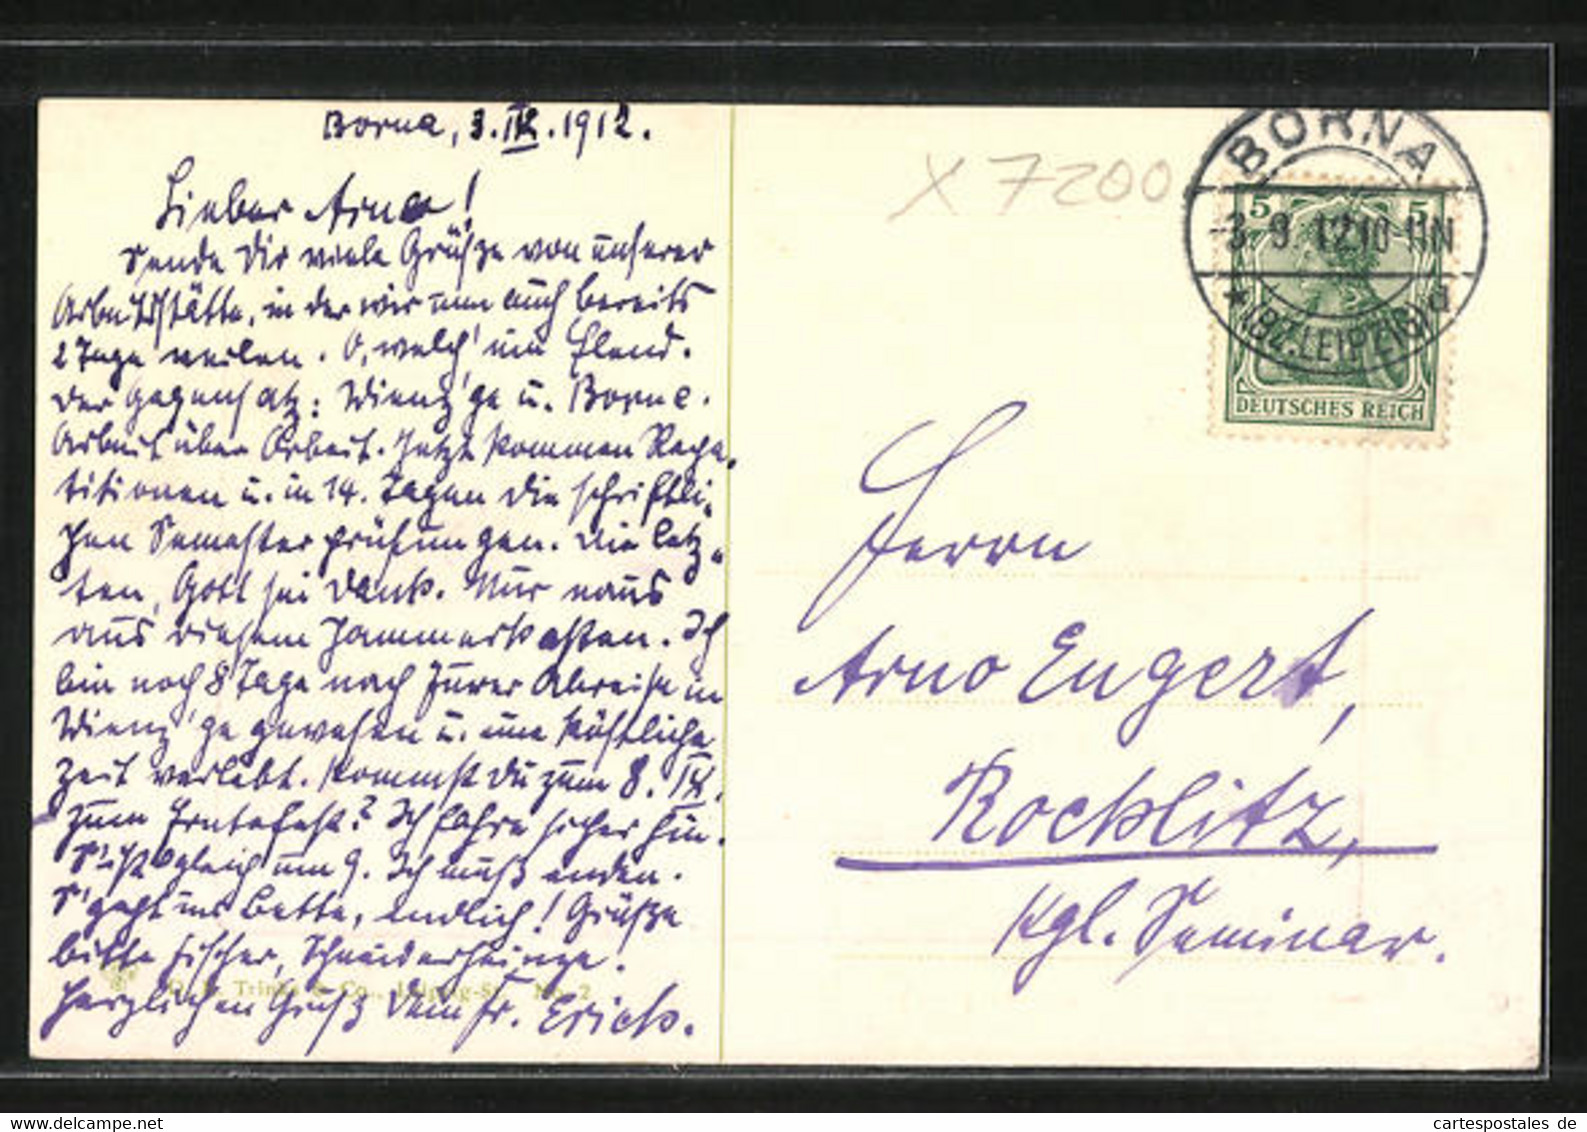 Borna, 3. IX. 1912.
Lieber Arno!
Sende Dir viele Grüße von unserer
Arbeitsstätte, in der wir nun auch bereits
2 Tage weilen. O, welch' ein Elend.
Der Gegensatz: Wienz'ge u. Borna.
Arbeit über Arbeit. Jetzt kommen Repe-
titionen u. in 14. Tagen die schriftli-
chen Semesterprüfungen. Die letz-
ten, Gott sei Dank. Nur naus
aus diesem Jammerkasten. Ich
bin noch 8 Tage nach Eurer Abreise in
Wienz'ge gewesen u. eine köstliche
Zeit verlebt. Kommst Du zum 8. IX.
zum Erntefest? Ich fahre sicher hin.
S'ist gleich um 9. Ich muß enden.
S'geht ins Bette, endlich! Grüße
bitte Fischer, Schneiderheinze.
Herzlichen Gruß Dein Fr. Erich.
Trinks & Co., Leipzig-St. No. 2
X 7200
BORNA
-3. 9. 12. 10-11N
* (BZ. LEIPZIG) d
5 5
DEUTSCHES REICH
Herrn
Arno Engert,
Rochlitz,
Kgl. Seminar.
cartespostales de